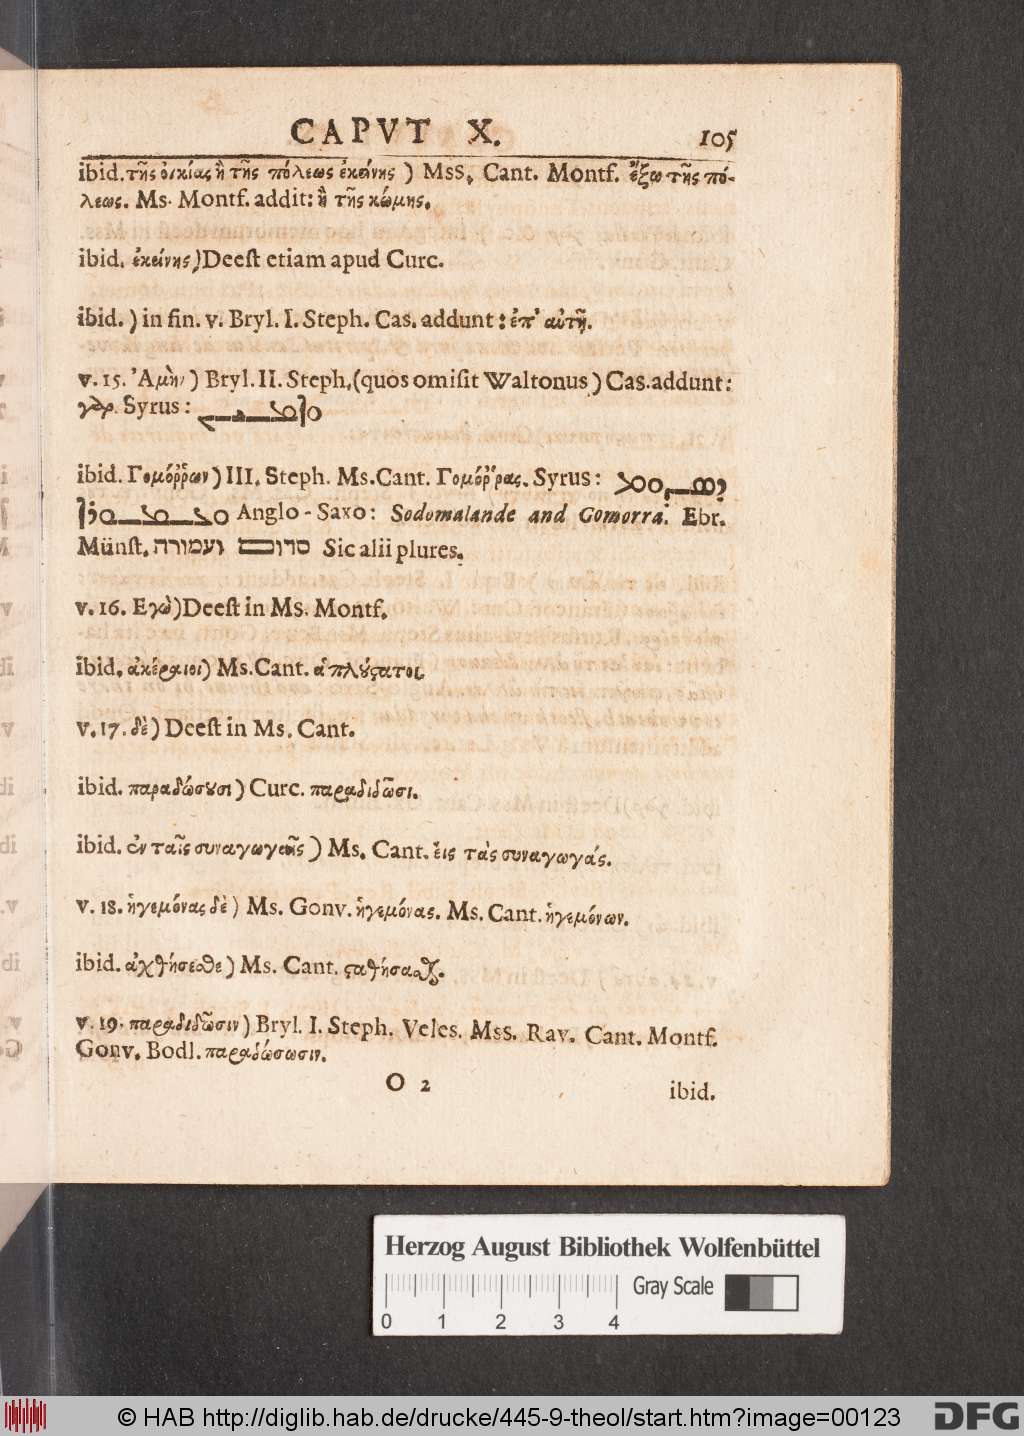 CAPVT X. 105
ibid. τῆς οἰκίας ἢ τῆς πόλεως ἐκείνης ) Mss. Cant. Montf. ἔξω τῆς πό-
λεως. Ms. Montf. addit: ἢ τῆς κώμης.
ibid. ἐκείνης) Deeſt etiam apud Curc.
ibid. ) in fin. v. Bryl. I. Steph. Caſ. addunt: ἐπ' αὐτῇ.
v. 15. Ἀμὴν ) Bryl. II. Steph. (quos omiſit Waltonus) Caſ. addunt:
γὰρ. Syrus:
ibid. Γομόῤῥων) III. Steph. Ms. Cant. Γομόῤῥας. Syrus:
Anglo-Saxo: Sodomalande and Gomorra. Ebr.
Münſt. סדום ועמורה Sic alii plures.
v. 16. Εγὼ) Deeſt in Ms. Montf.
ibid. ἀκέραιοι) Ms. Cant. ἁπλούςατοι.
v. 17. δὲ) Deeſt in Ms. Cant.
ibid. παραδώσουσι) Curc. παραδιδῶσι.
ibid. ἐν ταῖς συναγωγαῖς ) Ms. Cant. εἰς τὰς συναγωγάς.
v. 18. ἡγεμόνας δὲ) Ms. Gonv. ἡγεμόνας. Ms. Cant. ἡγεμόνων.
ibid. ἀχθήσεσθε) Ms. Cant. ςαθήσεσθε.
v. 19. παραδιδῶσιν) Bryl. I. Steph. Veles. Mss. Rav. Cant. Montf.
Gonv. Bodl. παραδώσωσιν.
O 2 ibid.
Herzog August Bibliothek Wolfenbüttel
Gray Scale
0 1 2 3 4
© HAB http://diglib.hab.de/drucke/445-9-theol/start.htm?image=00123
DFG